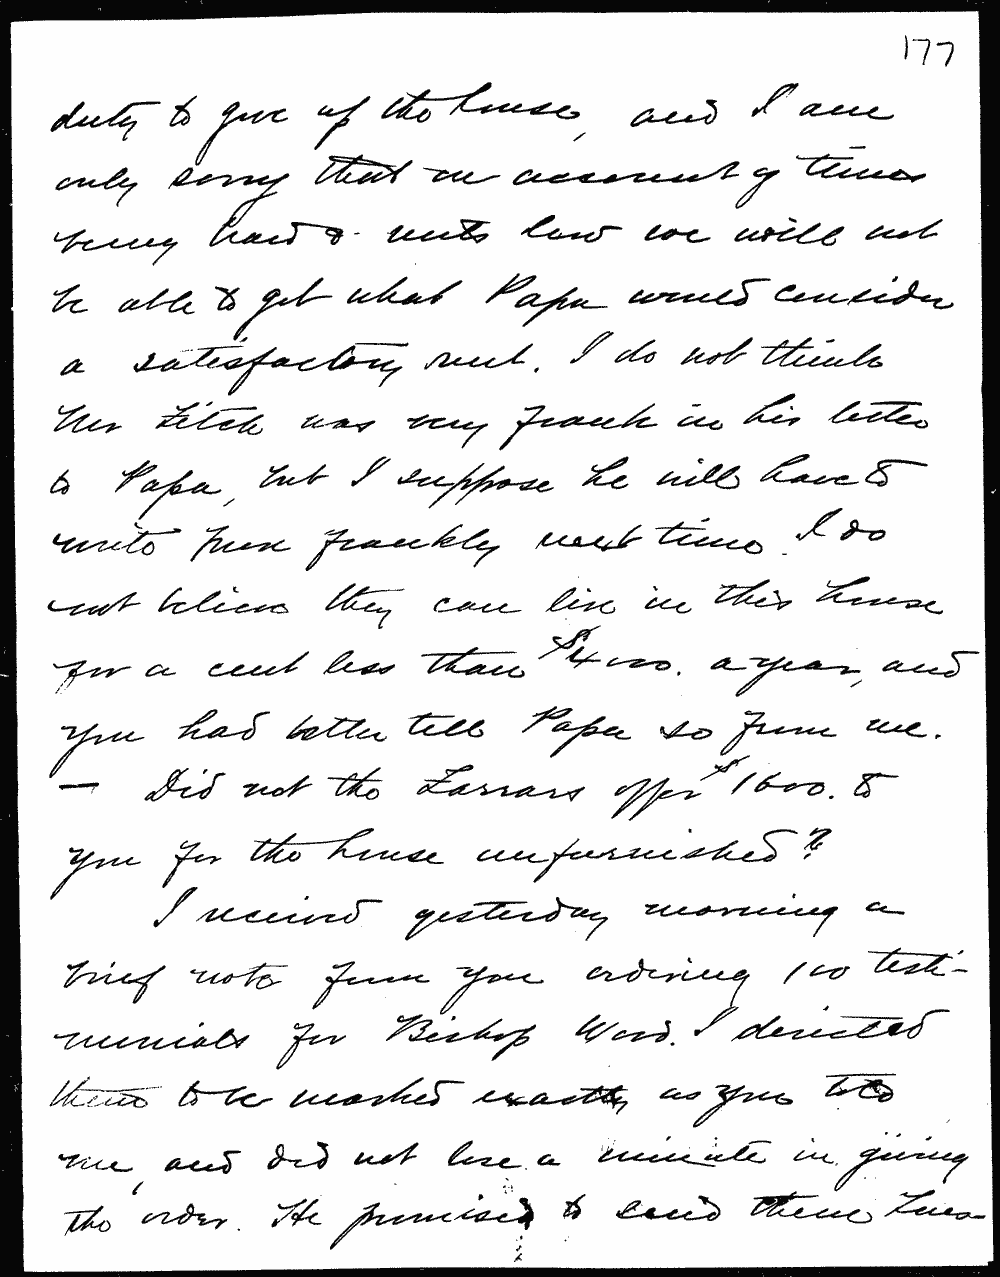 177
duty to give up the house, and I am
only sorry that on account of times
being hard & rents low we will not
be able to get what Papa would consider
a satisfactory rent. I do not think
Mr Fitch was very frank in his letter
to Papa, but I suppose he will have to
write more frankly next time. I do
not believe they can live in this house
for a cent less than $4000. a year, and
you had better tell Papa so from me.
— Did not the Farrars offer $1600. to
you for the house unfurnished?
I received yesterday morning a
brief note from you ordering 100 testi-
monials for Bishop Word. I directed
them to be marked exactly as you told
me, and did not lose a minute in giving
the order. He promised to send them Tues-